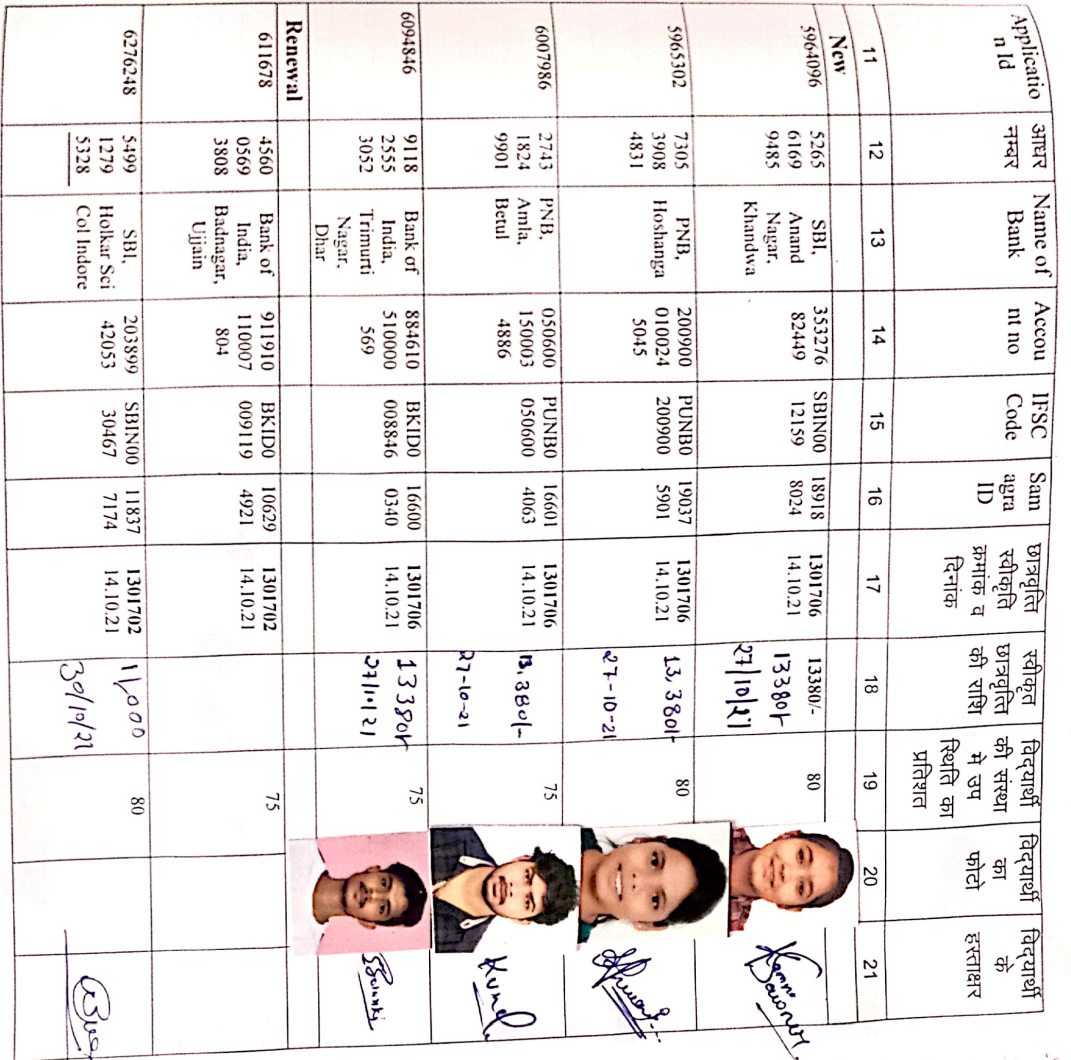 Applicatio
n Id
आधार
नम्बर
Name of
Bank
Accou
nt no
IFSC
Code
Sam
agra
ID
छात्रवृत्ति
स्वीकृति
क्रमांक व
दिनांक
स्वीकृत
छात्रवृत्ति
की राशि
विद्यार्थी
की संस्था
मे उप
स्थिति का
प्रतिशत
विद्यार्थी
का
फोटो
विद्यार्थी
के
हस्ताक्षर
11
12
13
14
15
16
17
18
19
20
21
New
5964096
5265
6169
9485
SBI,
Anand
Nagar,
Khandwa
353276
82449
SBIN00
12159
18918
8024
1301706
14.10.21
13380/-
13380/-
27/10/21
80
5965302
7305
3908
4831
PNB,
Hoshanga
200900
010024
5045
PUNB0
200900
19037
5901
1301706
14.10.21
13,380/-
27-10-21
80
6007986
2743
1824
9901
PNB,
Amla,
Betul
050600
150003
4886
PUNB0
050600
16601
4063
1301706
14.10.21
13,380/-
27-10-21
75
6094846
9118
2555
3052
Bank of
India,
Trimurti
Nagar,
Dhar
884610
510000
569
BKID0
008846
16600
0340
1301706
14.10.21
13380/-
27/10/21
75
Renewal
611678
4560
0569
3808
Bank of
India,
Badnagar,
Ujjain
911910
110007
804
BKID0
009119
10629
4921
1301702
14.10.21
75
6276248
5499
1279
5328
SBI,
Holkar Sci
Col Indore
203899
42053
SBIN00
30467
11837
7174
1301702
14.10.21
11,000
30/10/21
80